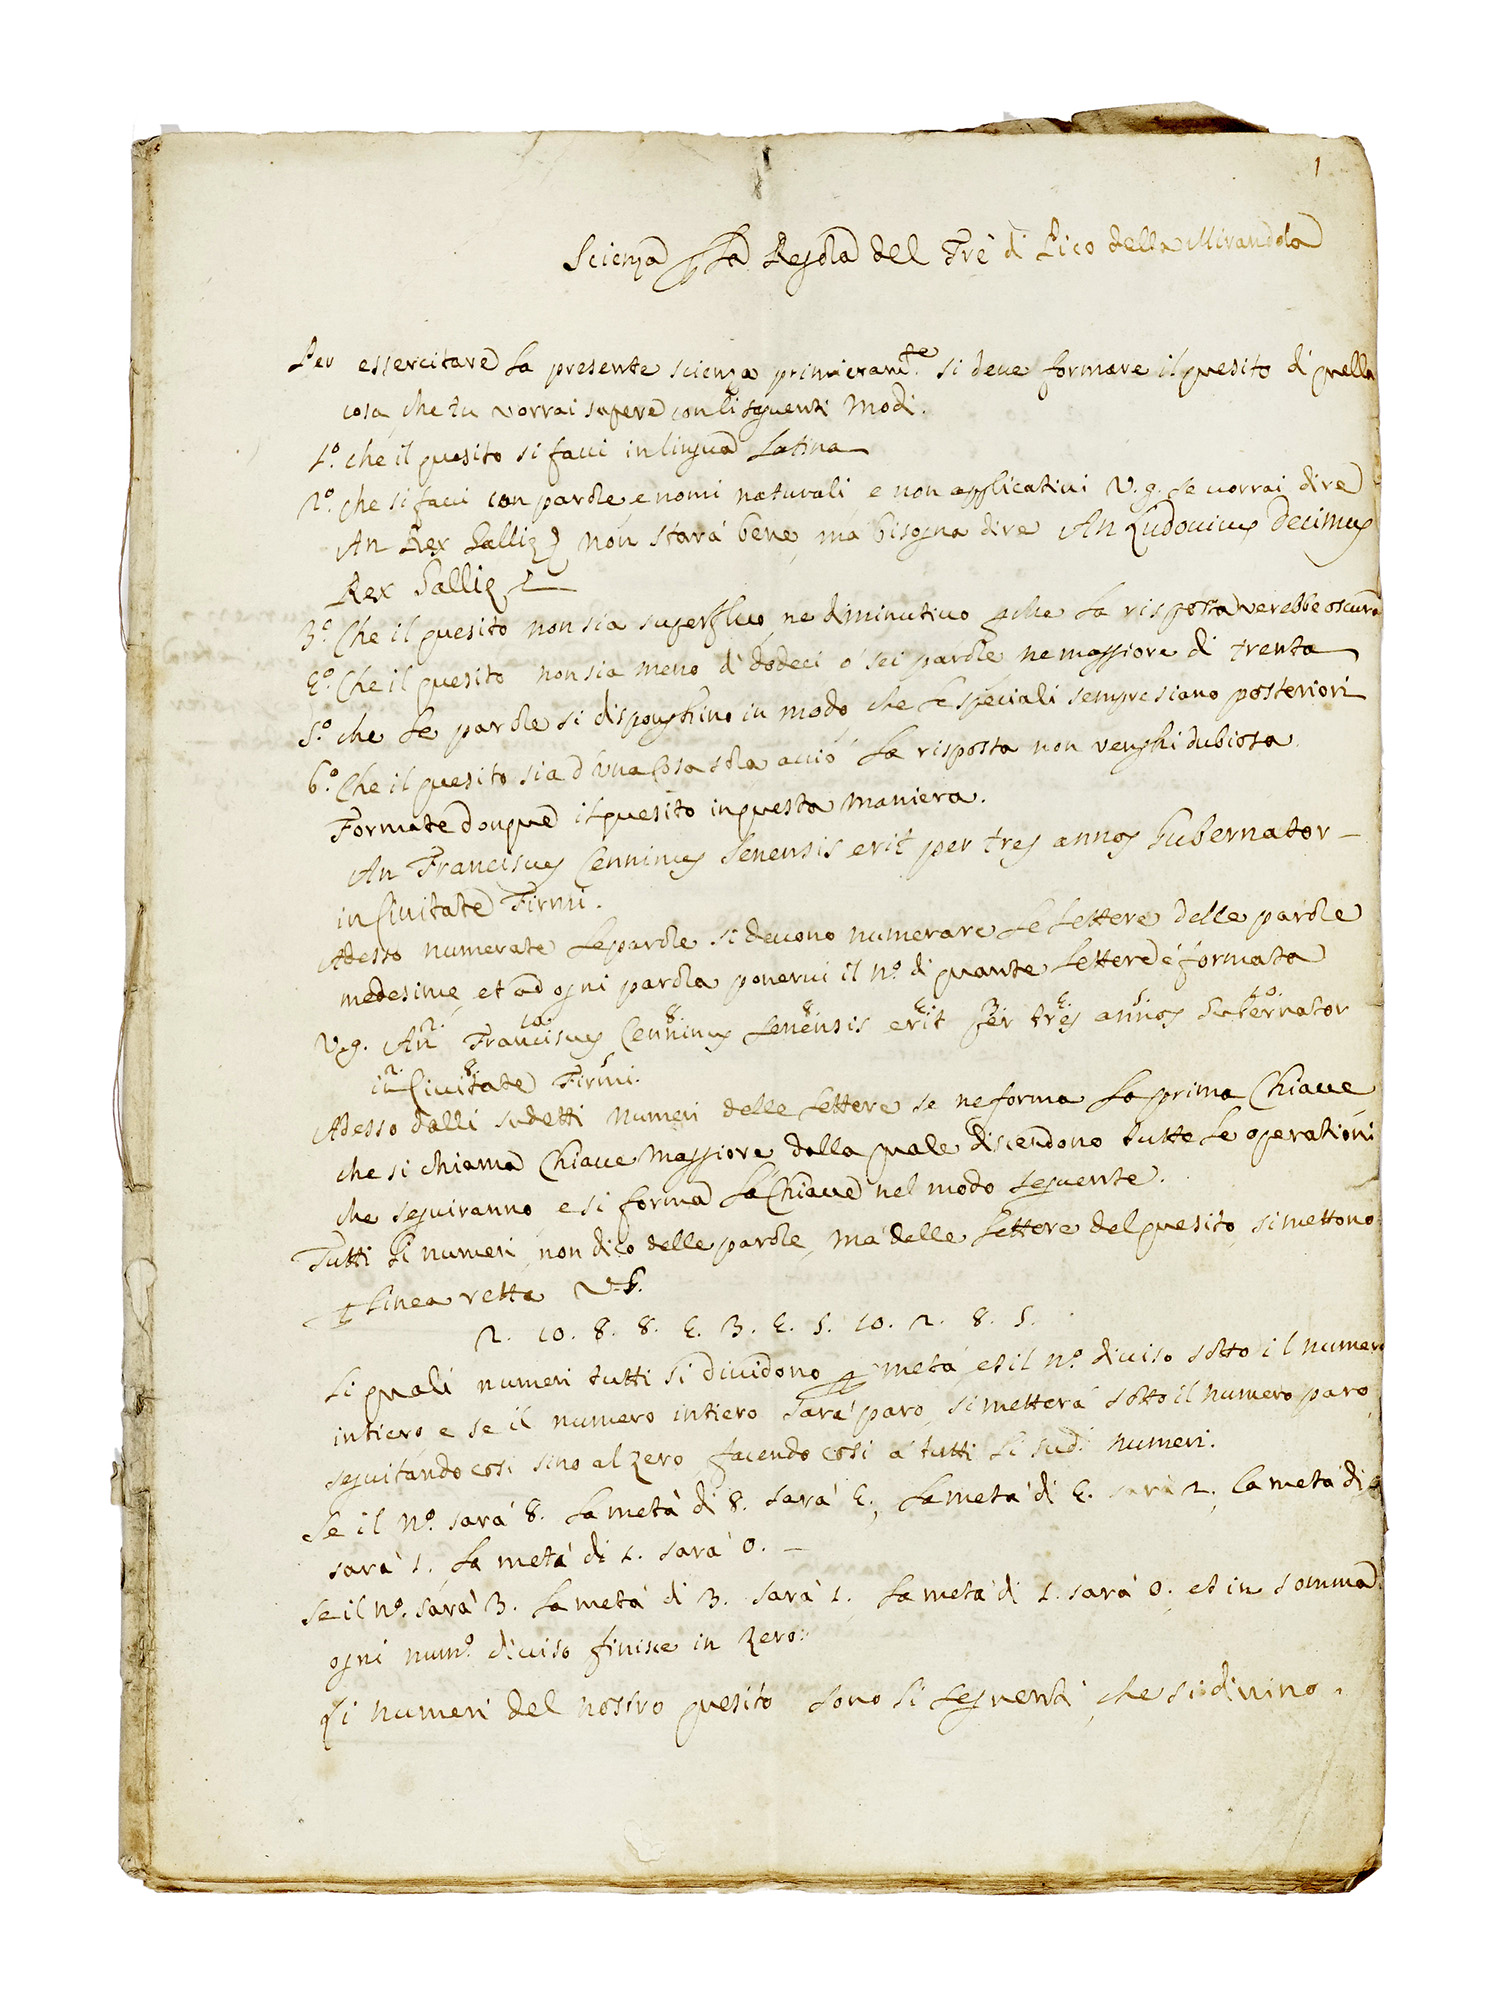 1
Scienza p la Regola del Tre di Pico della Mirandola
Per essercitare la presente scienza primieramte. si deve formare il quesito di quella
cosa, che tu vorrai sapere con li seguenti Modi.
1.o che il quesito si facci in lingua Latina
2.o che si facci con parole, e nomi naturali e non applicativi V.g. se vorrai dire
An Rex Gallię non starà bene, mà bisogna dire An Ludovicus Decimus
Rex Gallię
3.o Che il quesito non sia superfluo, ne diminutivo pche la risposta verebbe oscura
4.o Che il quesito non sia meno di dodeci ò sei parole, ne maggiore di trenta
5.o che le parole si disponghino in modo che le speciali sempre siano posteriori
6.o Che il quesito sia d'una Cosa sola acciò la risposta non venghi dubiosa.
Formate donque il quesito in questa maniera.
An Franciscus Cenninus Senensis erit per tres annos Gubernator
in Civitate Firmi.
Adesso numerate le parole si devono numerare le lettere delle parole
medesime, et ad ogni parola ponervi il no. di quante lettere è formata
2. 10. 8. 8. 4. 3. 4. 5. 10.
V.g. An Franciscus Cenninus Senensis erit per tres annos Gubernator
2. 8. 5
in Civitate Firmi.
Adesso dalli sudetti numeri delle lettere se ne forma la prima Chiave,
che si chiama Chiave Maggiore dalla quale discendono tutte le operationi
che seguiranno, e si forma la Chiave nel modo seguente.
Tutti li numeri, non dico delle parole, mà delle lettere del quesito, si mettono
p linea retta V.G.
2. 10. 8. 8. 4. 3. 4. 5. 10. 2. 8. 5.
li quali numeri tutti si dividono p metà et il no. diviso sotto il numero
intiero, e se il numero intiero sarà paro, si metterà sotto il numero paro,
seguitando così sino al zero, facendo così à tutti li sudi. numeri.
Se il no. sarà 8. la metà di 8. sarà 4., la metà di 4. sarà 2., la metà di 2
sarà 1., la metà di 1. sarà 0.
Se il no. sarà 3. la metà di 3. sarà 1., la metà di 1. sarà 0., et in somma
ogni numo. diviso finisce in zero.
Li numeri del nostro quesito sono li seguenti, che si divino.